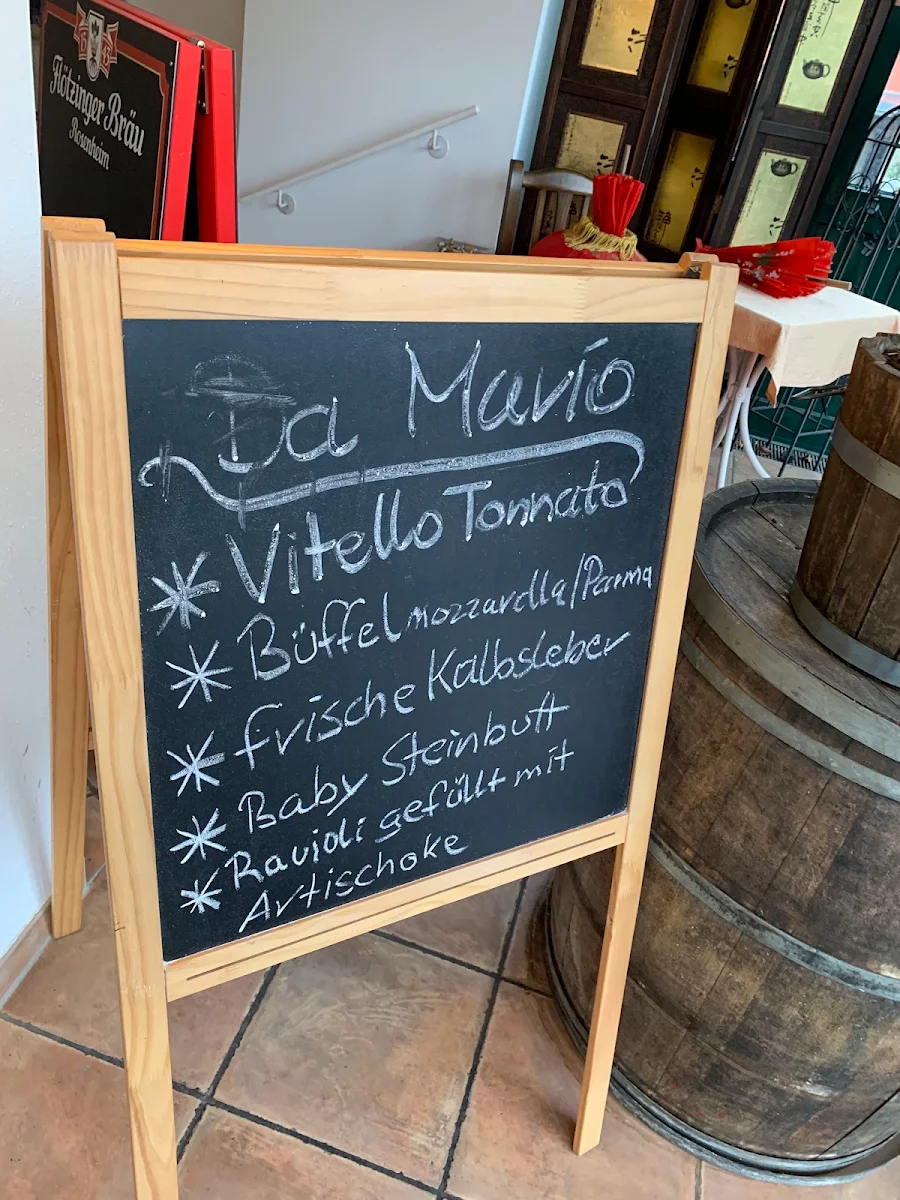 Flötzinger Bräu
Rosenheim
Da Mario
* Vitello Tonnato
* Büffelmozzarella/Parma
* frische Kalbsleber
* Baby Steinbutt
* Ravioli gefüllt mit
Artischoke